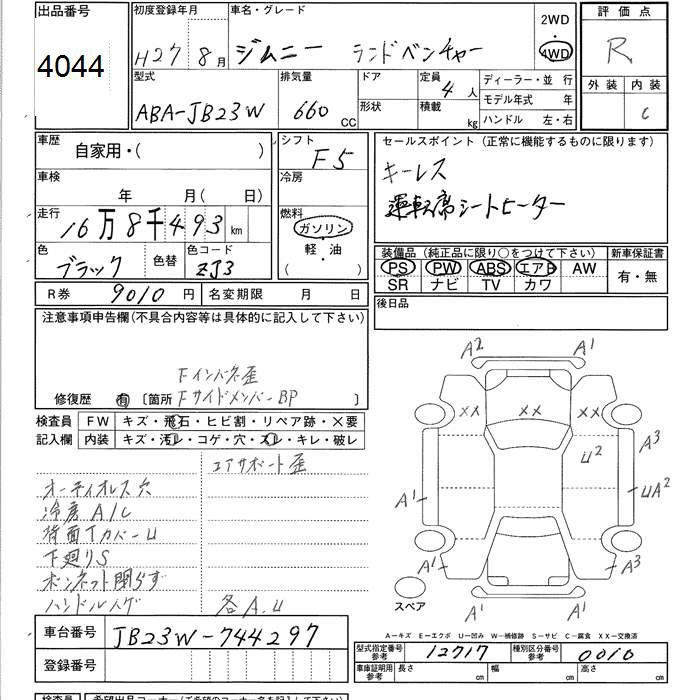 出品番号
4044
初度登録年月
H27 8月
車名・グレード
ジムニー ランドベンチャー
2WD
・
4WD
評価点
R
外装 内装
C
型式
ABA-JB23W
排気量
660 CC
ドア
形状
定員
4 人
積載 kg
ディーラー・並 行
モデル年式 年
ハンドル 左・右
車歴
自家用・( )
シフト
F5
冷房
車検
年 月( 日)
走行
16万8千493 km
燃料
ガソリン
軽・油
( )
色
ブラック
色替
色コード
ZJ3
セールスポイント(正常に機能するものに限ります)
キーレス
運転席シートヒーター
装備品(純正品に限り○をつけて下さい)
PS PW ABS エアB AW
SR ナビ TV カワ
新車保証書
有・無
R券 9010 円
名変期限 月 日
後日品
注意事項申告欄(不具合内容等は具体的に記入して下さい)
Fインパネ歪
修復歴 有 〔箇所 FサイドメンバーBP 〕
検査員
記入欄
FW キズ・飛石・ヒビ割・リペア跡・×要
内装 キズ・汚レ・コゲ・穴・スレ・キレ・破レ
コアサポート歪
オーディオレス穴
冷房A/C
背面TカバーU
下廻りS
ボンネット開らず
ハンドルハゲ
各A.U
A2 A1
XX XX XX
A3
U2
A1 UA2
A1 A3
A1 A1
スペア
A-キズ E-エクボ U-凹み W-補修跡 S-サビ C-腐食 XX-交換済
車台番号 JB23W-744297
登録番号
型式指定番号
参考
12717
種別区分番号
参考
0010
車庫証明用
参考
長さ 幅 高さ